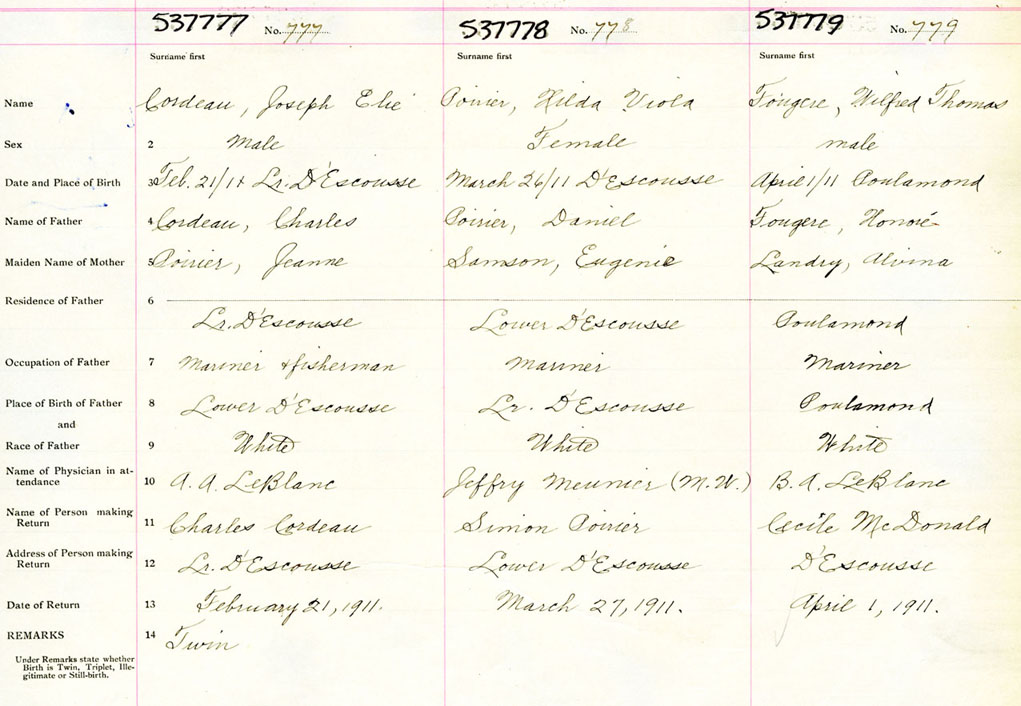 537777 No. 777 537778 No. 778 537779 No. 779
Surname first Surname first Surname first
Name Cordeau, Joseph Elie Poirier, Hilda Viola Fougere, Wilfred Thomas
Sex 2 Male Female male
Date and Place of Birth 3 Feb. 21/11 Lr. D'Escousse March 26/11 D'Escousse April 1/11 Poulamond
Name of Father 4 Cordeau, Charles Poirier, Daniel Fougere, Honoré
Maiden Name of Mother 5 Poirier, Jeanne Samson, Eugenie Landry, Alvina
Residence of Father 6
Lr. D'Escousse Lower D'Escousse Poulamond
Occupation of Father 7 Mariner & fisherman Mariner Mariner
Place of Birth of Father 8 Lower D'Escousse Lr. D'Escousse Poulamond
and
Race of Father 9 White White White
Name of Physician in at-
tendance 10 A. A. LeBlanc Jeffry Meunier (M.W.) B. A. LeBlanc
Name of Person making
Return 11 Charles Cordeau Simon Poirier Cecile McDonald
Address of Person making
Return 12 Lr. D'Escousse Lower D'Escousse D'Escousse
Date of Return 13 February 21, 1911. March 27, 1911. April 1, 1911.
REMARKS 14 Twin
Under Remarks state whether
Birth is Twin, Triplet, Ille-
gitimate or Still-birth.